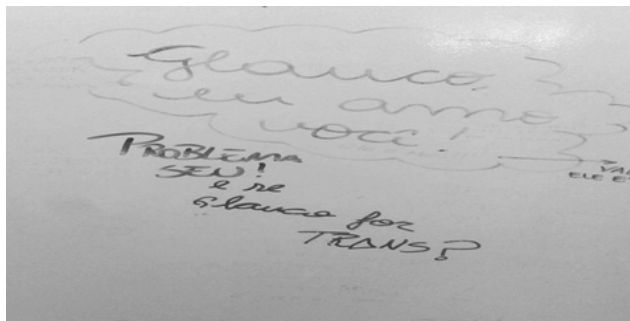 Glauco,
eu amo
você!
PROBLEMA
SEU!
e se
Glauco for
TRANS?
ELE